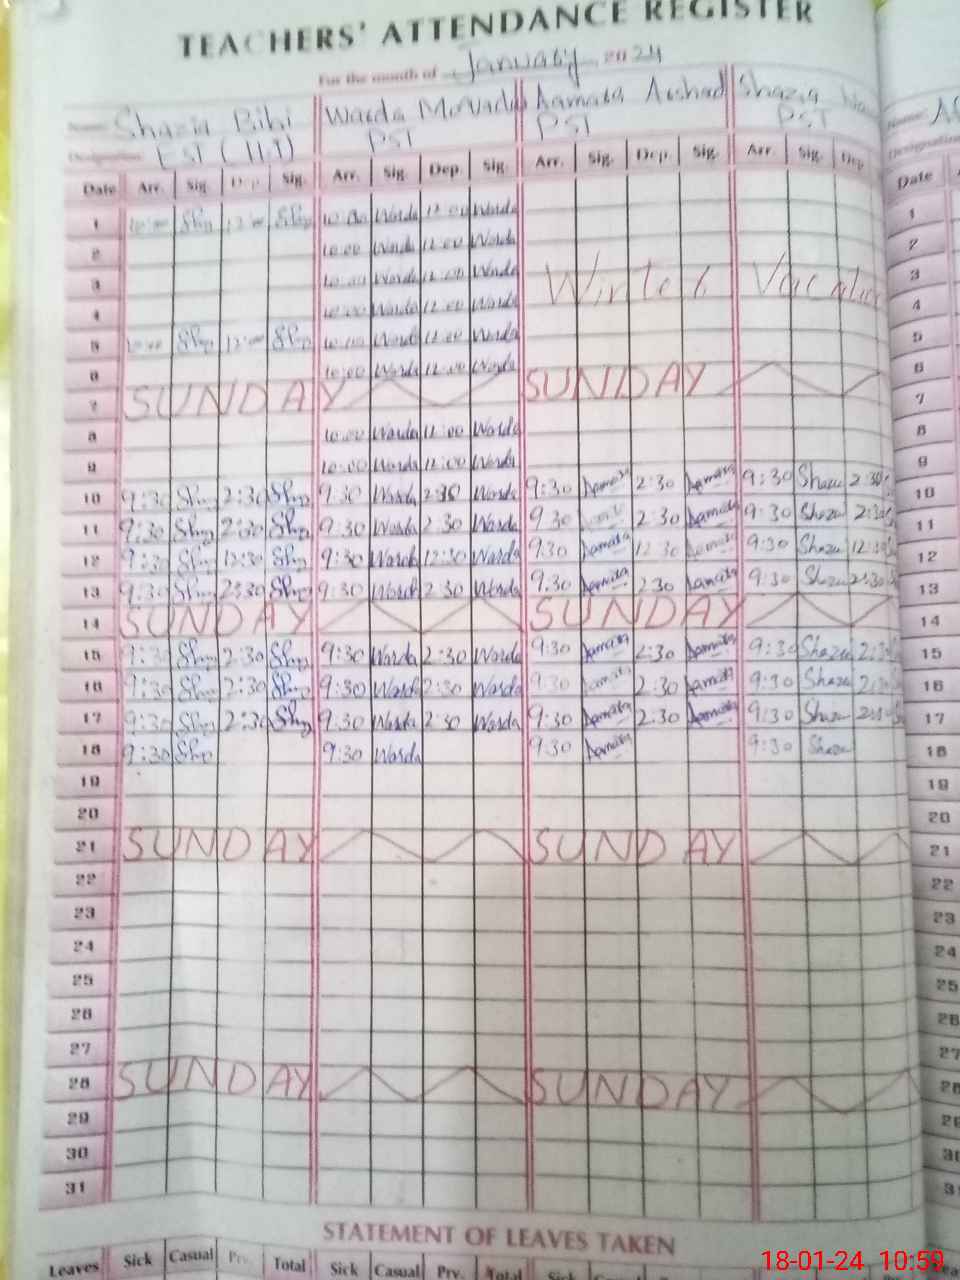 TEACHERS' ATTENDANCE REGISTER
For the month of January 2024
Name Shazia Bibi Warda Aamata Arshad Shazia
Designation EST PST PST PST
Date Arr. Sig. Dep. Sig. Arr. Sig. Dep. Sig. Arr. Sig. Dep. Sig. Arr. Sig. Dep Date
1 10:00 Shz 12:00 Shz 10:00 Warda 12:00 Warda 1
2 10:00 Warda 12:00 Warda 2
3 10:00 Warda 12:00 Warda Winter 3
4 10:00 Warda 12:00 Warda 4
5 10:00 Shz 12:00 Shz 10:00 Warda 12:00 Warda 5
6 10:00 Warda 12:00 Warda 6
7 SUNDAY SUNDAY 7
8 10:00 Warda 12:00 Warda 8
9 10:00 Warda 12:00 Warda 9
10 9:30 Shz 2:30 Shz 9:30 Warda 2:30 Warda 9:30 Aamata 2:30 Aamata 9:30 Shazia 2:30 10
11 9:30 Shz 2:30 Shz 9:30 Warda 2:30 Warda 9:30 2:30 Aamata 9:30 Shazia 2:30 11
12 9:30 Shz 12:30 Shz 9:30 Warda 12:30 Warda 9:30 Aamata 12:30 Aamata 9:30 Shazia 12:30 12
13 9:30 Shz 2:30 Shz 9:30 Warda 2:30 Warda 9:30 Aamata 2:30 Aamata 9:30 Shazia 2:30 13
14 SUNDAY SUNDAY 14
15 9:30 Shz 2:30 Shz 9:30 Warda 2:30 Warda 9:30 Aamata 2:30 Aamata 9:30 Shazia 2:30 15
16 9:30 Shz 2:30 Shz 9:30 Warda 2:30 Warda 9:30 Aamata 2:30 Aamata 9:30 Shazia 2:30 16
17 9:30 Shz 2:30 Shz 9:30 Warda 2:30 Warda 9:30 Aamata 2:30 Aamata 9:30 Shazia 2:30 17
18 9:30 Shz 9:30 Warda 9:30 Aamata 9:30 Shazia 18
19 19
20 20
21 SUNDAY SUNDAY 21
22 22
23 23
24 24
25 25
26 26
27 27
28 SUNDAY SUNDAY 28
29 29
30 30
31 31
STATEMENT OF LEAVES TAKEN
Leaves Sick Casual Prv. Total Sick Casual Prv. Total Sick Casual Prv. Total Sick
18-01-24 10:59